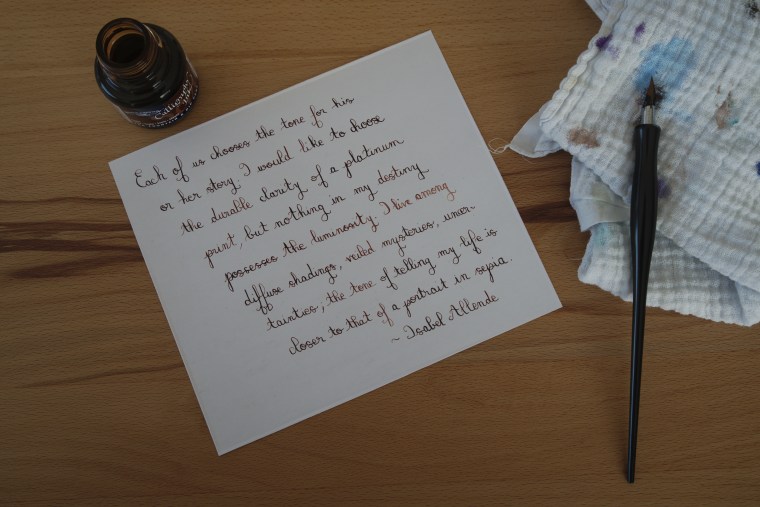 Calligraphy
Each of us chooses the tone for his
or her story. I would like to choose
the durable clarity of a platinum
print, but nothing in my destiny
possesses the luminosity. I live among
diffuse shadings, veiled mysteries, uncer-
tainties; the tone of telling my life is
closer to that of a portrait in sepia.
~ Isabel Allende